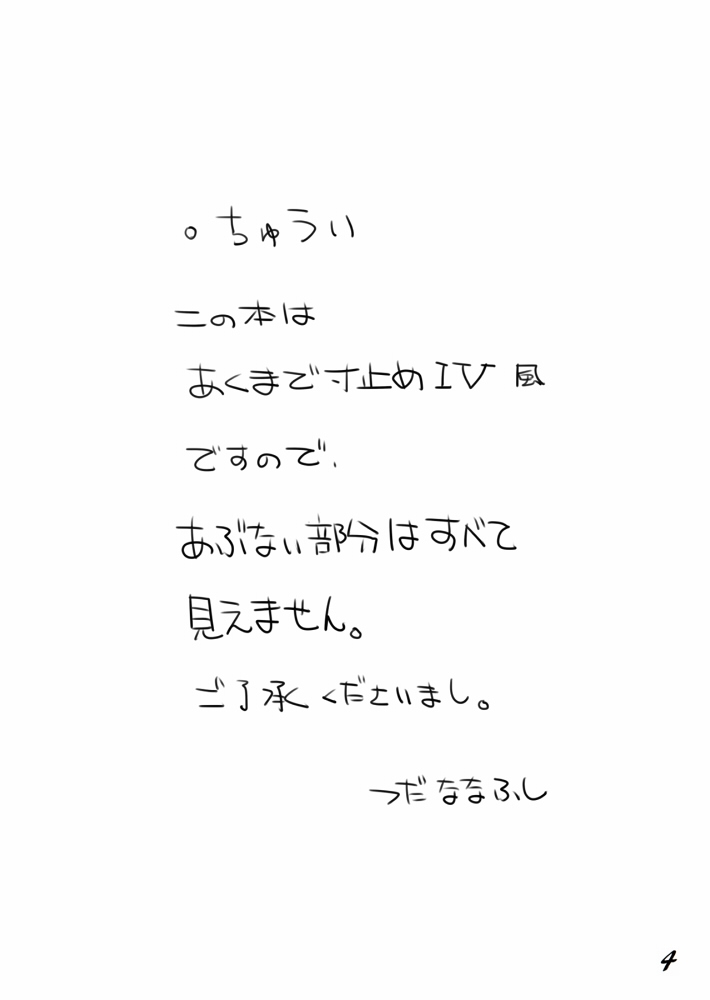 。ちゅうい
この本は
あくまで寸止めIV風
ですので、
あぶない部分はすべて
見えません。
ご了承くださいまし。
つだななふし
4